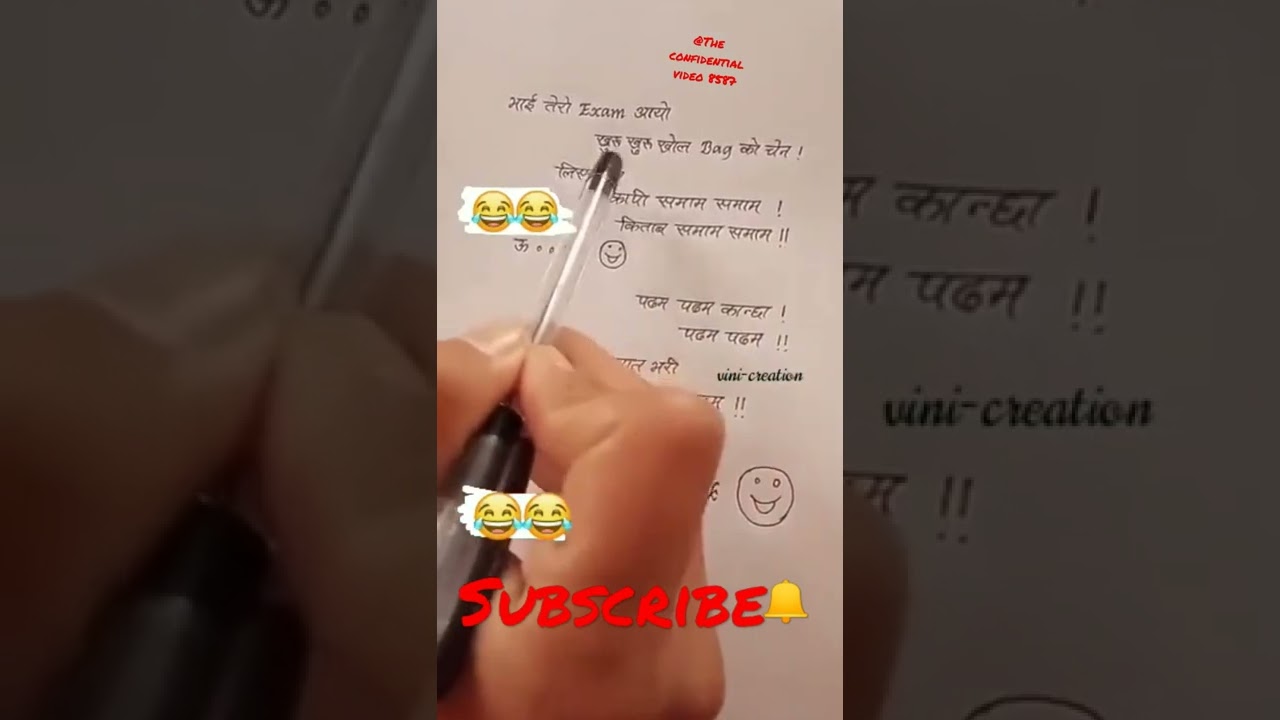 @The
confidential
video 8587
भाई तेरो Exam आयो
खुरु खुरु खोल Bag को चेन !
कापी समाम समाम !
किताब समाम समाम !!
ऊ . . .
पढम पढम कान्छा !
पढम पढम !!
भरी
vini-creation
!!
Subscribe
म कान्छा !
म पढम !!
vini-creation
म !!